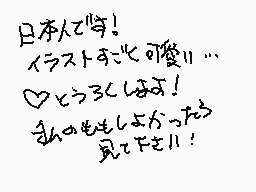 日本人です!
イラストすごく可愛い…
♡とうろくします!
私のもも しよかったら
見て下さい!